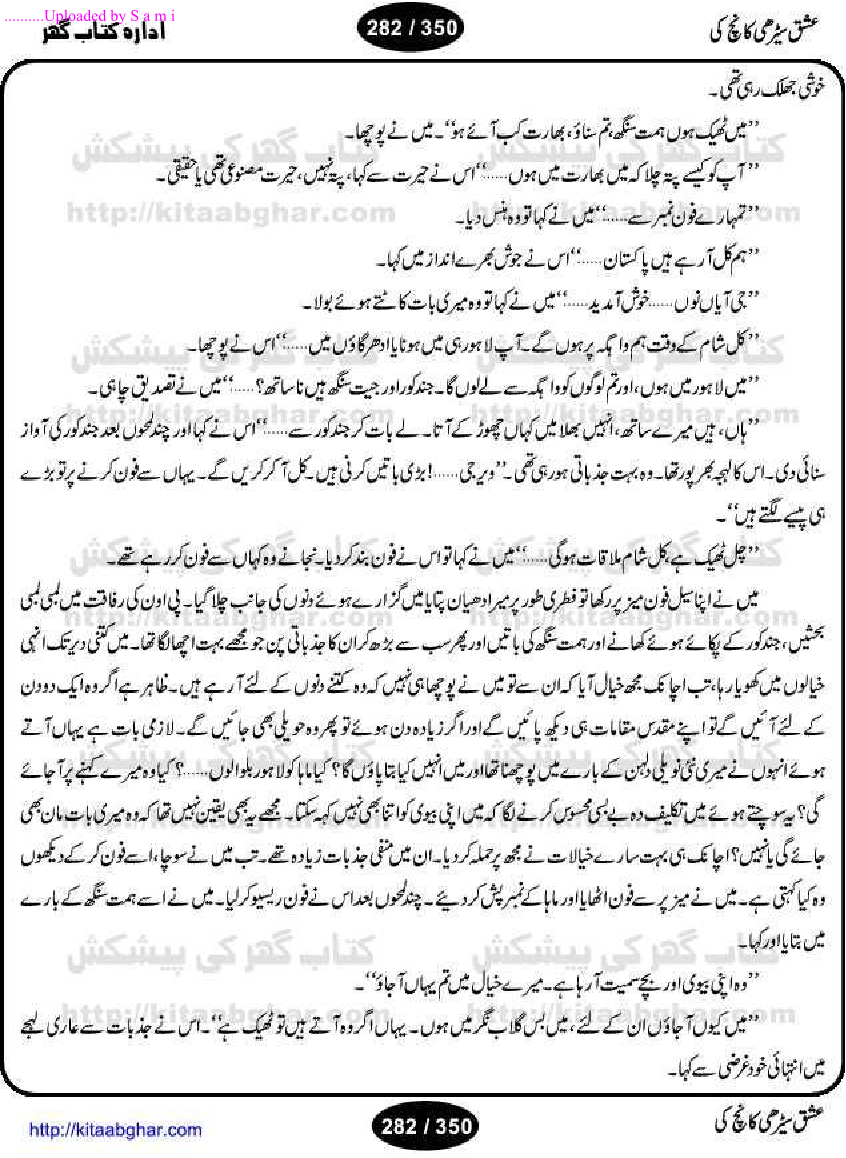 ..........Uploaded by S a m i
ادارہ کتاب گھر
282 / 350
عشق سیڑھی کانچ کی
خوشی جھلک رہی تھی۔
’’میں ٹھیک ہوں ہمت سنگھ، تم سناؤ، بھارت کب آئے ہو‘‘۔ میں نے پوچھا۔
’’آپ کو کیسے پتہ چلا کہ میں بھارت میں ہوں......‘‘ اس نے حیرت سے کہا، پتہ نہیں، حیرت مصنوعی تھی یا حقیقی۔
’’تمہارے فون نمبر سے......‘‘ میں نے کہا تو وہ ہنس دیا۔
’’ہم کل آ رہے ہیں پاکستان......‘‘ اس نے جوش بھرے انداز میں کہا۔
’’جی آیاں نوں...... خوش آمدید......‘‘ میں نے کہا تو وہ میری بات کاٹتے ہوئے بولا۔
’’کل شام کے وقت ہم واہگہ پر ہوں گے۔ آپ لاہور ہی میں ہونا یا ادھر گاؤں میں......‘‘ اس نے پوچھا۔
’’میں لاہور میں ہوں، اور تم لوگوں کو واہگہ سے لے لوں گا۔ جند کور اور جیت سنگھ ہیں نا ساتھ؟......‘‘ میں نے تصدیق چاہی۔
’’ہاں، ہیں میرے ساتھ، انہیں بھلا میں کہاں چھوڑ کے آتا۔ لے بات کر جند کور سے......‘‘ اس نے کہا اور چند لمحوں بعد جند کور کی آواز
سنائی دی۔ اس کا لہجہ بھرپور تھا۔ وہ بہت جذباتی ہو رہی تھی۔ ’’ویر جی......! بڑی باتیں کرنی ہیں۔ کل آ کر کریں گے۔ یہاں سے فون کرنے پر تو بڑے
ہی پیسے لگتے ہیں‘‘۔
’’چل ٹھیک ہے، کل شام ملاقات ہوگی......‘‘ میں نے کہا تو اس نے فون بند کر دیا۔ نجانے وہ کہاں سے فون کر رہے تھے۔
میں نے اپنا سیل فون میز پر رکھا تو فطری طور پر میرا دھیان پتایا میں گزارے ہوئے دنوں کی جانب چلا گیا۔ پی اون کی رفاقت میں لمبی لمبی
بحثیں، جند کور کے پکائے ہوئے کھانے اور ہمت سنگھ کی باتیں اور پھر سب سے بڑھ کر ان کا جذباتی پن جو مجھے بہت اچھا لگا تھا۔ میں کتنی دیر تک انہی
خیالوں میں کھویا رہا، تب اچانک مجھ خیال آیا کہ ان سے تو میں نے پوچھا ہی نہیں کہ وہ کتنے دنوں کے لئے آ رہے ہیں۔ ظاہر ہے اگر وہ ایک دو دن
کے لئے آئیں گے تو اپنے مقدس مقامات ہی دیکھ پائیں گے اور اگر زیادہ دن ہوئے تو پھر وہ حویلی بھی جائیں گے۔ لازمی بات ہے یہاں آتے
ہوئے انہوں نے میری نئی نویلی دلہن کے بارے میں پوچھنا تھا اور میں انہیں کیا بتا پاؤں گا؟ کیا ماہا کو لاہور بلوا لوں......؟ کیا وہ میرے کہنے پر آ جائے
گی؟ یہ سوچتے ہوئے میں تکلیف دہ بے بسی محسوس کرنے لگا کہ میں اپنی بیوی کو اتنا بھی نہیں کہہ سکتا۔ مجھے یہ بھی یقین نہیں تھا کہ وہ میری بات مان بھی
جائے گی یا نہیں؟ اچانک ہی بہت سارے خیالات نے مجھ پر حملہ کر دیا۔ ان میں منفی جذبات زیادہ تھے۔ تب میں نے سوچا، اسے فون کر کے دیکھوں
وہ کیا کہتی ہے۔ میں نے میز پر سے فون اٹھایا اور ماہا کے نمبر پش کر دیئے۔ چند لمحوں بعد اس نے فون ریسیو کر لیا۔ میں نے اسے ہمت سنگھ کے بارے
میں بتایا اور کہا۔
’’وہ اپنی بیوی اور بچے سمیت آ رہا ہے۔ میرے خیال میں تم یہاں آ جاؤ‘‘۔
’’میں کیوں آ جاؤں ان کے لئے، میں بس گلاب نگر میں ہوں۔ یہاں اگر وہ آتے ہیں تو ٹھیک ہے‘‘۔ اس نے جذبات سے عاری لہجے
میں انتہائی خود غرضی سے کہا۔
http://kitaabghar.com
282 / 350
عشق سیڑھی کانچ کی